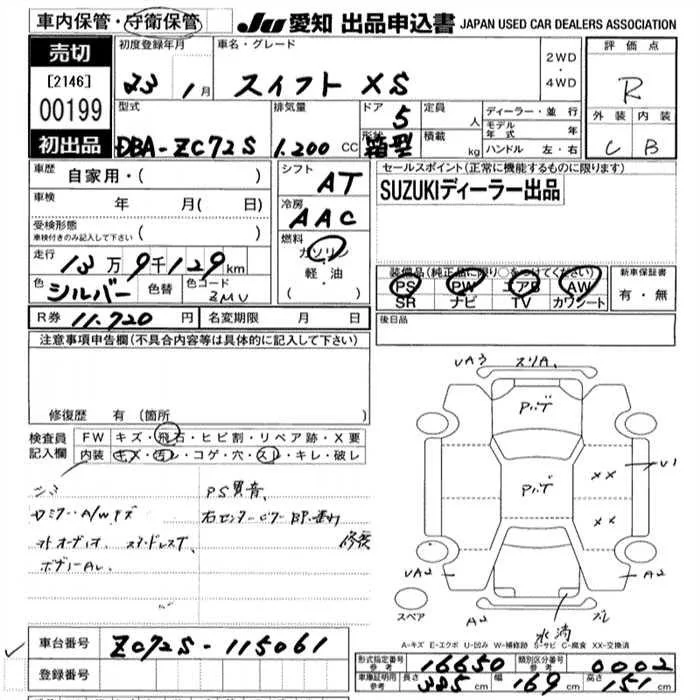 車内保管・守衛保管
JU 愛知 出品申込書 JAPAN USED CAR DEALERS ASSOCIATION
売切
[2146]
00199
初出品
初度登録年月
23 1月
車名・グレード
スイフト XS
2WD
・
4WD
評価点
R
外装 内装
C B
型式
DBA-ZC72S
排気量
1.200 CC
ドア 5
形状 箱型
定員 人
積載 kg
ディーラー・並行
モデル年式 年
ハンドル 左・右
車歴
自家用・( )
車検 年 月( 日)
受検形態
車検付きのみ記入して下さい ( )
走行
13万9千129km
色 シルバー 色替 色コード ZMU
シフト
AT
冷房
AAC
燃料
ガソリン
軽・油
( )
セールスポイント(正常に機能するものに限ります)
SUZUKIディーラー出品
装備品(純正品に限り○をつけてください)
PS PW エアB AW
SR ナビ TV カワシート
新車保証書
有・無
R券 11.720円 名変期限 月 日
後日品
注意事項申告欄(不具合内容等は具体的に記入して下さい)
修復歴 有(箇所
検査員記入欄
FW キズ・飛石・ヒビ割・リペア跡・X要
内装 キズ・汚レ・コゲ・穴・スレ・キレ・破レ
PS異音、
右センターピラー
修復
A/Wキズ
スタッドレスT、
UA3
スリA、
U1
XX
XX
UA2
A2
A2
水滴
スペア
A-キズ E-エクボ U-凹み W-補修跡 S-サビ C-腐食 XX-交換済
車台番号 ZC72S-115061
登録番号
形式指定番号 参考 16650
類別区分番号 参考 0002
車庫証明用 参考 長さ 385cm 幅 169cm 高さ 151cm